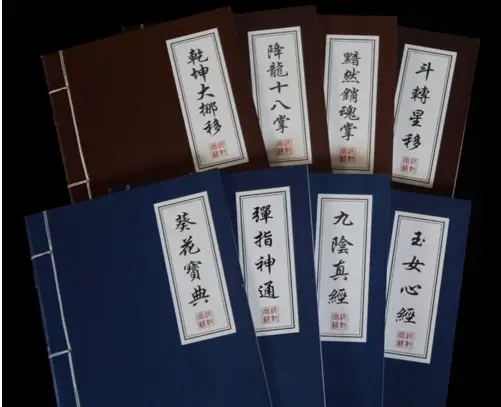 乾坤大挪移
降龍十八掌
黯然銷魂掌
斗轉星移
葵花寶典
彈指神通
九陰真經
玉女心經